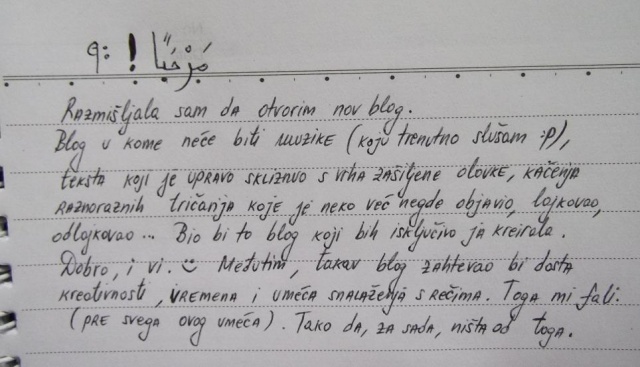 مَرْحَبًا ! :P
Razmišljala sam da otvorim nov blog.
Blog u kome neće biti muzike (koju trenutno slušam :P),
teksta koji je upravo skliznuo s vrha zašiljene olovke, kačenja
raznoraznih tričanja koje je neko već negde objavio, lajkovao,
odlajkovao... Bio bi to blog koji bih isključivo ja kreirala.
Dobro, i vi. 😊 Međutim, takav blog zahtevao bi dosta
kreativnosti, vremena i umeća snalaženja s rečima. Toga mi fali.
(pre svega ovog umeća). Tako da, za sada, ništa od toga.